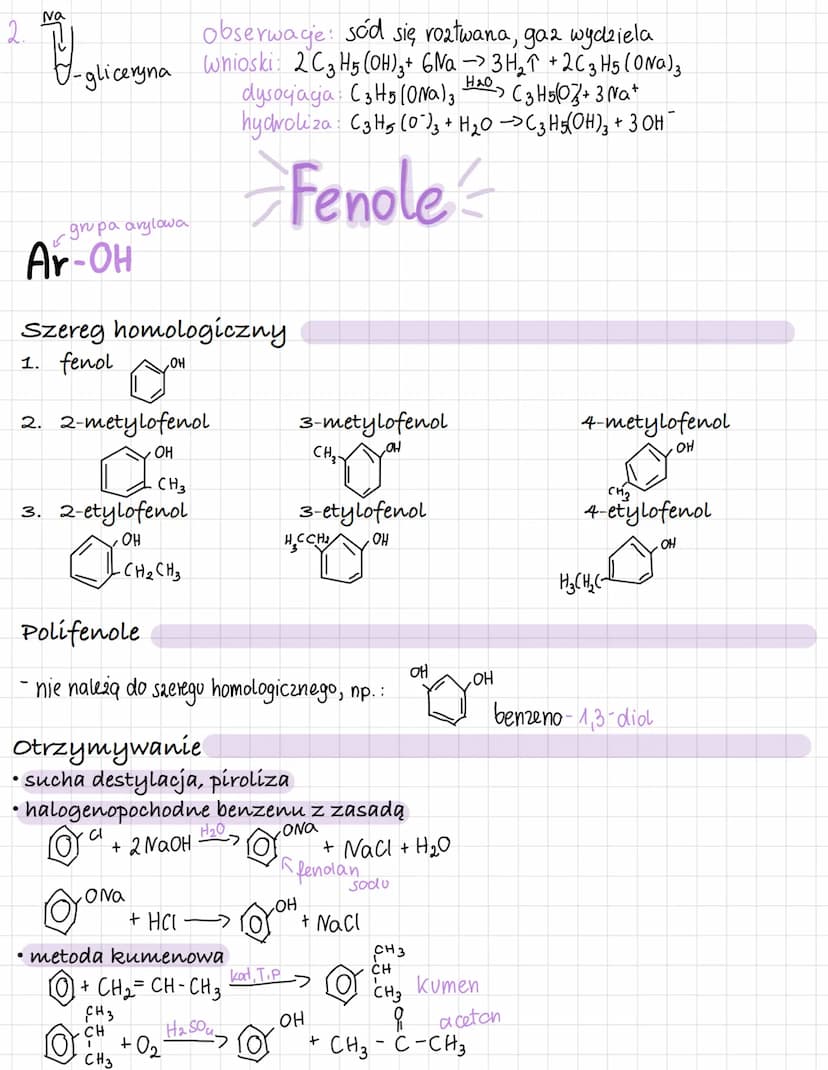 2. Na
-gliceryna
obserwacje: sód się roztwana, gaz wydziela
wnioski: 2C₃H₅(OH)₃ + 6Na → 3H₂↑ + 2C₃H₅(ONa)₃
dysocjacja: C₃H₅(ONa)₃ H₂O→ C₃H₅(O⁻)₃ + 3Na⁺
hydroliza: C₃H₅(O⁻)₃ + H₂O → C₃H₅(OH)₃ + 3OH⁻
Fenole
grupa arylowa
Ar-OH
Szereg homologiczny
1. fenol OH
2. 2-metylofenol 3-metylofenol 4-metylofenol
OH CH₃ CH₃ OH OH CH₃
3. 2-etylofenol 3-etylofenol 4-etylofenol
OH CH₂CH₃ H₃CCH₂ OH OH H₃CH₂C
Polifenole
- nie należą do szeregu homologicznego, np.: OH OH
benzeno-1,3-diol
Otrzymywanie
• sucha destylacja, piroliza
• halogenopochodne benzenu z zasadą
Cl + 2NaOH H₂O→ ONa + NaCl + H₂O
fenolan
sodu
ONa + HCl → OH + NaCl
• metoda kumenowa
+ CH₂=CH-CH₃ kat,T,p→ CH₃ CH CH₃ kumen
CH₃ CH CH₃ + O₂ H₂SO₄→ OH + CH₃-C-CH₃ O aceton